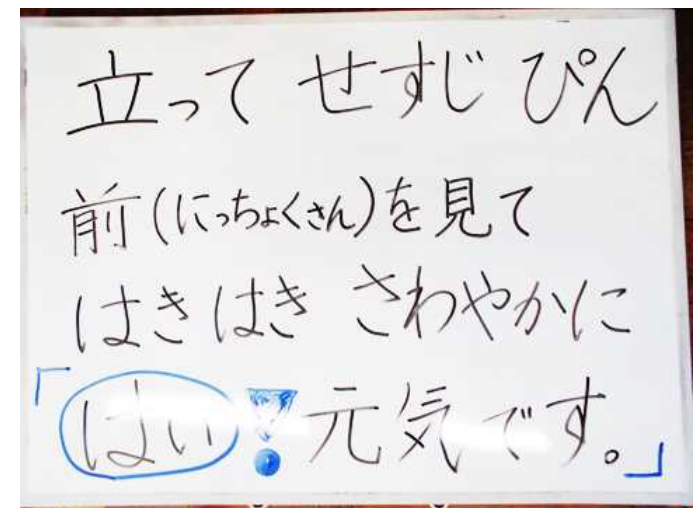 立って せすじ ぴん
前(にっちょくさん)を見て
はきはき さわやかに
「はい!元気です。」